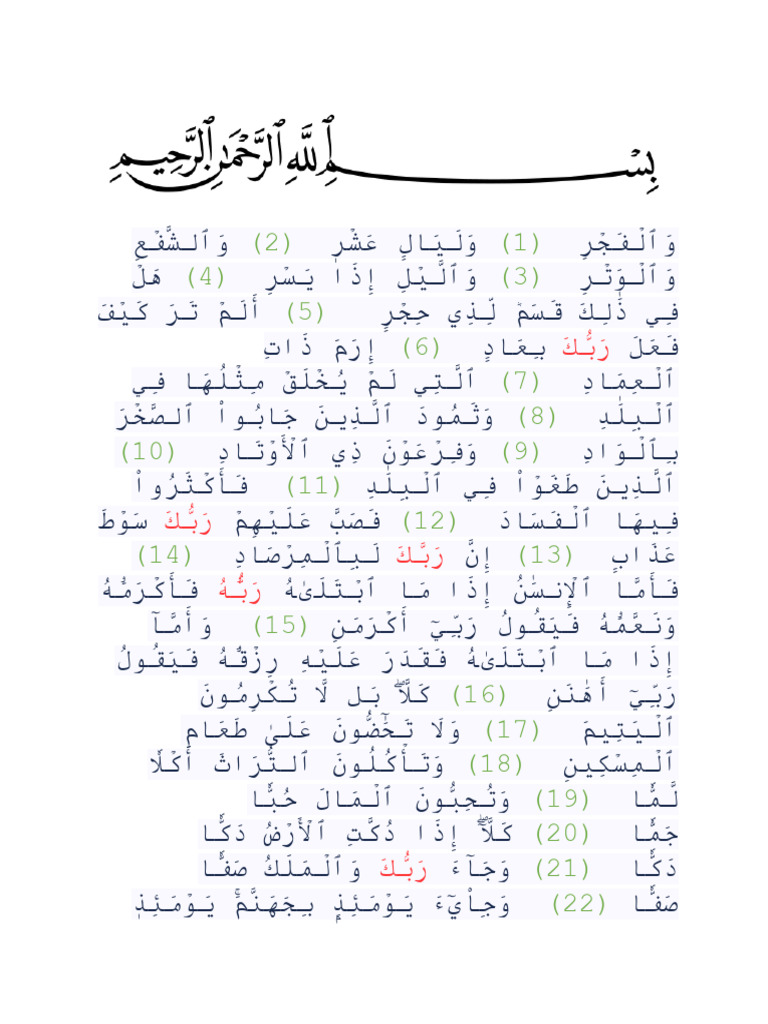 بِسْمِ ٱللَّهِ ٱلرَّحْمَٰنِ ٱلرَّحِيمِ
وَٱلْفَجْرِ (1) وَلَيَالٍ عَشْرٍ (2) وَٱلشَّفْعِ
وَٱلْوَتْرِ (3) وَٱلَّيْلِ إِذَا يَسْرِ (4) هَلْ
فِي ذَٰلِكَ قَسَمٞ لِّذِي حِجْرٍ (5) أَلَمْ تَرَ كَيْفَ
فَعَلَ رَبُّكَ بِعَادٍ (6) إِرَمَ ذَاتِ
ٱلْعِمَادِ (7) ٱلَّتِي لَمْ يُخْلَقْ مِثْلُهَا فِي
ٱلْبِلَٰدِ (8) وَثَمُودَ ٱلَّذِينَ جَابُواْ ٱلصَّخْرَ
بِٱلْوَادِ (9) وَفِرْعَوْنَ ذِي ٱلْأَوْتَادِ (10)
ٱلَّذِينَ طَغَوْاْ فِي ٱلْبِلَٰدِ (11) فَأَكْثَرُواْ
فِيهَا ٱلْفَسَادَ (12) فَصَبَّ عَلَيْهِمْ رَبُّكَ سَوْطَ
عَذَابٍ (13) إِنَّ رَبَّكَ لَبِٱلْمِرْصَادِ (14)
فَأَمَّا ٱلْإِنسَٰنُ إِذَا مَا ٱبْتَلَىٰهُ رَبُّهُۥ فَأَكْرَمَهُۥ
وَنَعَّمَهُۥ فَيَقُولُ رَبِّيٓ أَكْرَمَنِ (15) وَأَمَّآ
إِذَا مَا ٱبْتَلَىٰهُ فَقَدَرَ عَلَيْهِ رِزْقَهُۥ فَيَقُولُ
رَبِّيٓ أَهَٰنَنِ (16) كَلَّاۖ بَل لَّا تُكْرِمُونَ
ٱلْيَتِيمَ (17) وَلَا تَحَٰٓضُّونَ عَلَىٰ طَعَامِ
ٱلْمِسْكِينِ (18) وَتَأْكُلُونَ ٱلتُّرَاثَ أَكْلٗا
لَّمّٗا (19) وَتُحِبُّونَ ٱلْمَالَ حُبّٗا
جَمّٗا (20) كَلَّآۖ إِذَا دُكَّتِ ٱلْأَرْضُ دَكّٗا
دَكّٗا (21) وَجَآءَ رَبُّكَ وَٱلْمَلَكُ صَفّٗا
صَفّٗا (22) وَجِاْيٓءَ يَوْمَئِذِۭ بِجَهَنَّمَۚ يَوْمَئِذٖ